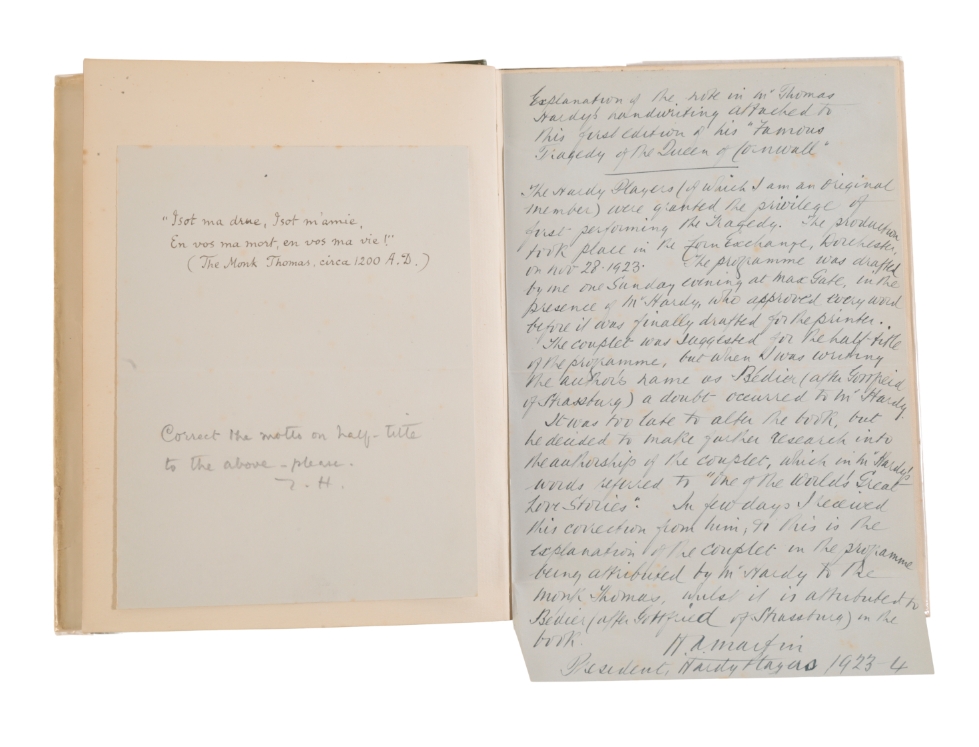 "Isot ma drue, Isot m'amie,
En vos ma mort, en vos ma vie!"
(The Monk Thomas, circa 1200 A.D.)
Correct the motto on half-title
to the above - please.
T. H.
Explanation of the note in Mr Thomas
Hardy's handwriting attached to
this first edition of his "Famous
Tragedy of the Queen of Cornwall"
The Hardy Players (of which I am an original
member) were granted the privilege of
first performing the Tragedy. The production
took place in the Corn Exchange, Dorchester,
on Nov 28-1923. The programme was drafted
by me one Sunday evening at Max Gate, in the
presence of Mr Hardy, who approved every word
before it was finally drafted for the printer..
The couplet was suggested for the half-title
of the programme, but when I was writing
the author's name as Bédier (after Gottfried
of Strassburg) a doubt occurred to Mr Hardy.
It was too late to alter the book, but
he decided to make further research into
the authorship of the couplet, which in Mr Hardy's
words referred to "One of the World's Great
Love Stories". In few days I received
this correction from him, & this is the
explanation of the couplet in the programme
being attributed by Mr Hardy to the
Monk Thomas, whilst it is attributed to
Bédier (after Gottfried of Strassburg) in the
book.
H.A. Martin
President, Hardy Players 1923-4